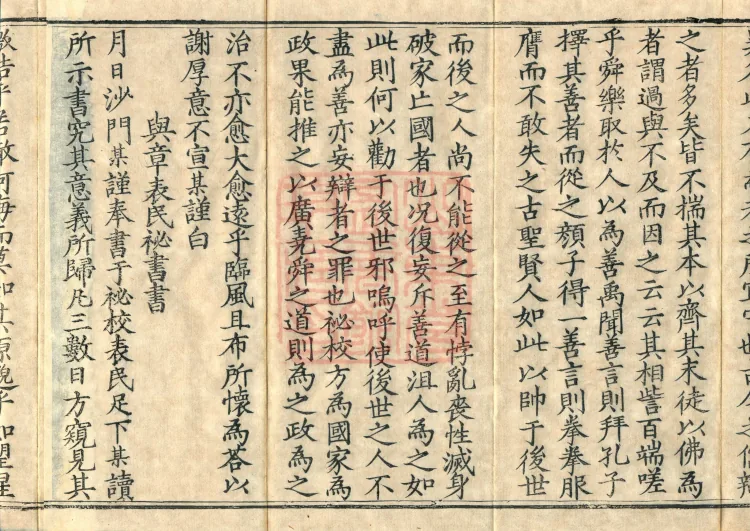 之者多矣皆不揣其本以齊其末徒以佛為
者謂過與不及而因之云云其相訾百端嗟
乎舜樂取於人以為善禹聞善言則拜孔子
擇其善者而從之顏子得一善言則拳拳服
膺而不敢失之古聖賢人如此以帥于後世
而後之人尚不能從之至有悖亂喪性滅身
破家亡國者也況復妄斥善道沮人為之如
此則何以勸于後世邪嗚呼使後世之人不
盡為善亦妄辯者之罪也祕校方為國家為
政果能推之以廣堯舜之道則為之政為之
治不亦愈大愈遠乎臨風且布所懷為荅以
謝厚意不宣某謹白
與章表民祕書書
月日沙門某謹奉書于祕校表民足下某讀
所示書究其意義所歸凡三數日方窺見其